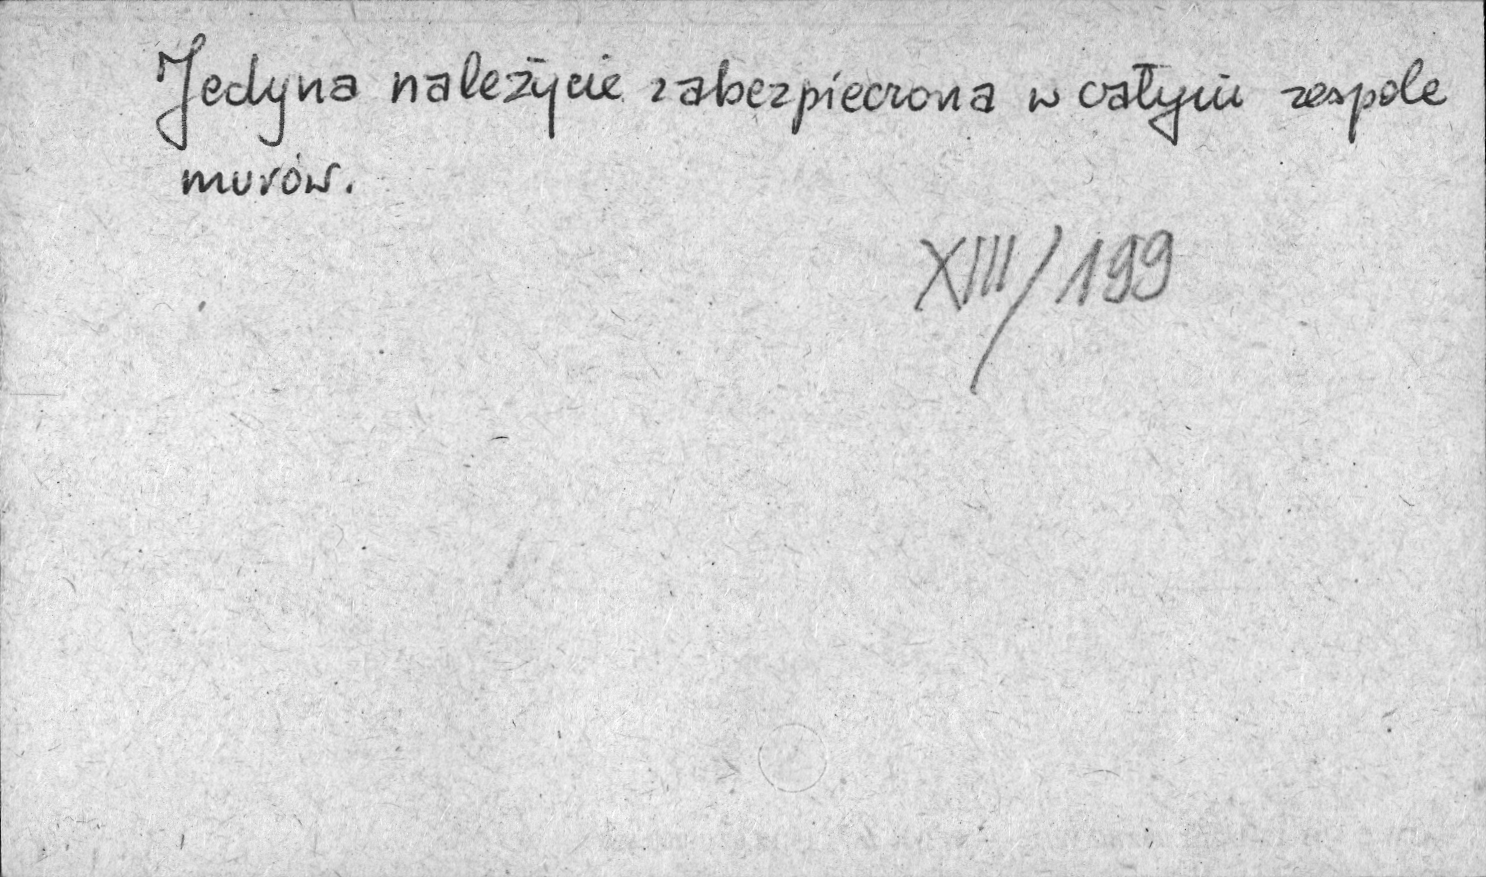 Jedyna należycie zabezpieczona w całym zespole
murów.
XIII/199